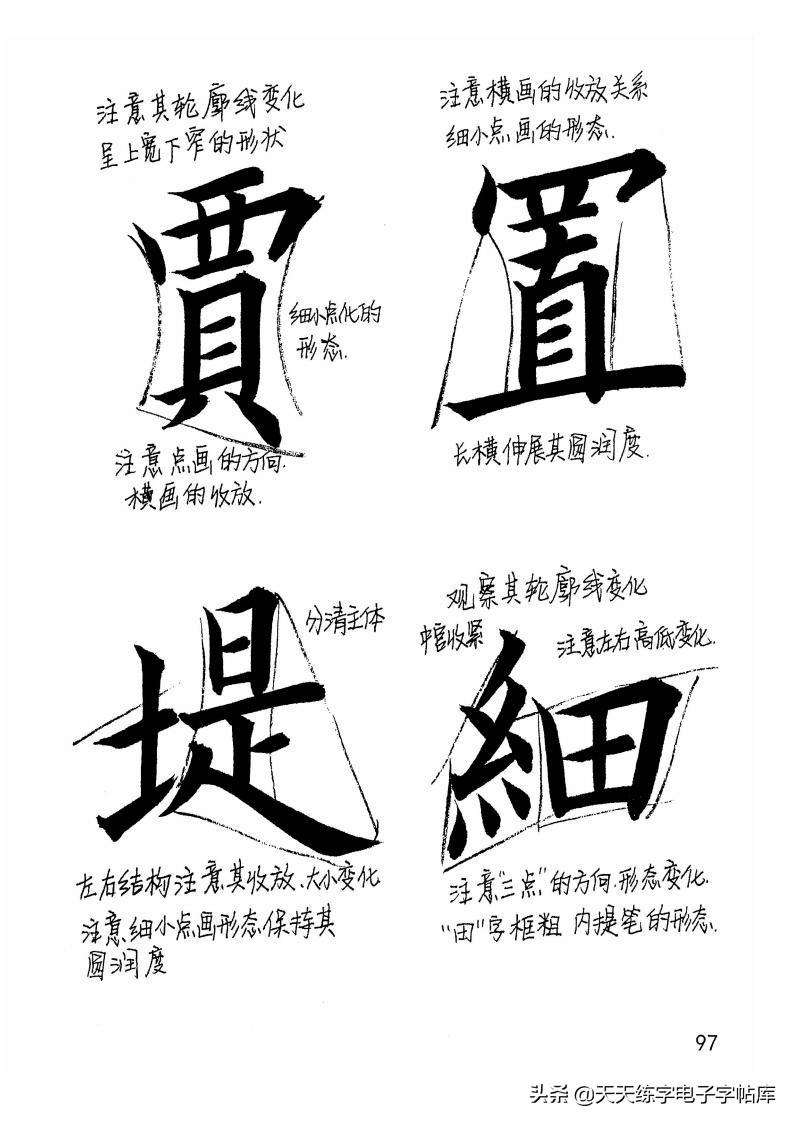 注意其轮廓线变化
呈上宽下窄的形状
賈
细小点化的
形态.
注意点画的方向.
横画的收放.
注意横画的收放关系
细小点画的形态.
置
长横伸展其圆润度.
分清主体
堤
左右结构注意其收放、大小变化
注意细小点画形态保持其
圆润度
观察其轮廓线变化
中宫收紧
注意左右高低变化.
細
注意“三点”的方向.形态变化.
“田”字框粗 内提笔的形态.
97
头条 @天天练字电子字帖库